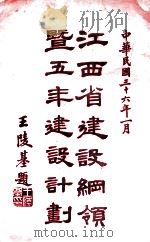 中華民國三十六年一月
江西省建設綱領
暨五年建設計劃
王陵基題